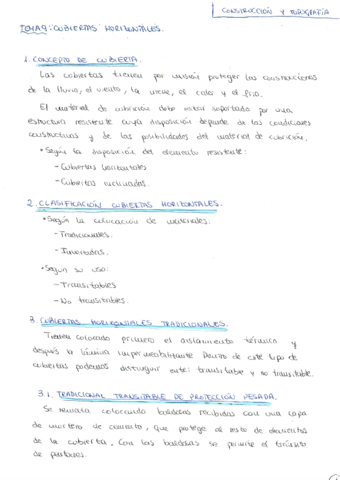 CONSTRUCCIÓN Y TOPOGRAFÍA
TEMA 9: CUBIERTAS HORIZONTALES.
1. CONCEPTO DE CUBIERTA.
Las cubiertas tienen por misión proteger las construcciones
de la lluvia, el viento, la nieve, el calor y el frío.
El material de cubrición debe estar soportado por una
estructura resistente cuya disposición depende de las condiciones
constructivas y de las posibilidades del material de cubrición.
• Según la disposición del elemento resistente:
- Cubiertas horizontales
- Cubiertas inclinadas.
2. CLASIFICACIÓN CUBIERTAS HORIZONTALES.
• Según la colocación de materiales:
- Tradicionales.
- Invertidas.
• Según su uso:
- Transitables
- No transitables.
3. CUBIERTAS HORIZONTALES TRADICIONALES.
Tienen colocado primero el aislamiento térmico y
después la lámina impermeabilizante. Dentro de este tipo de
cubiertas podemos distinguir entre: transitable y no transitable.
3.1. TRADICIONAL TRANSITABLE DE PROTECCIÓN PESADA.
Se remata colocando baldosas recibidas con una capa
de mortero de cemento, que protege al resto de elementos
de la cubierta. Con las baldosas se permite el tránsito
de personas.